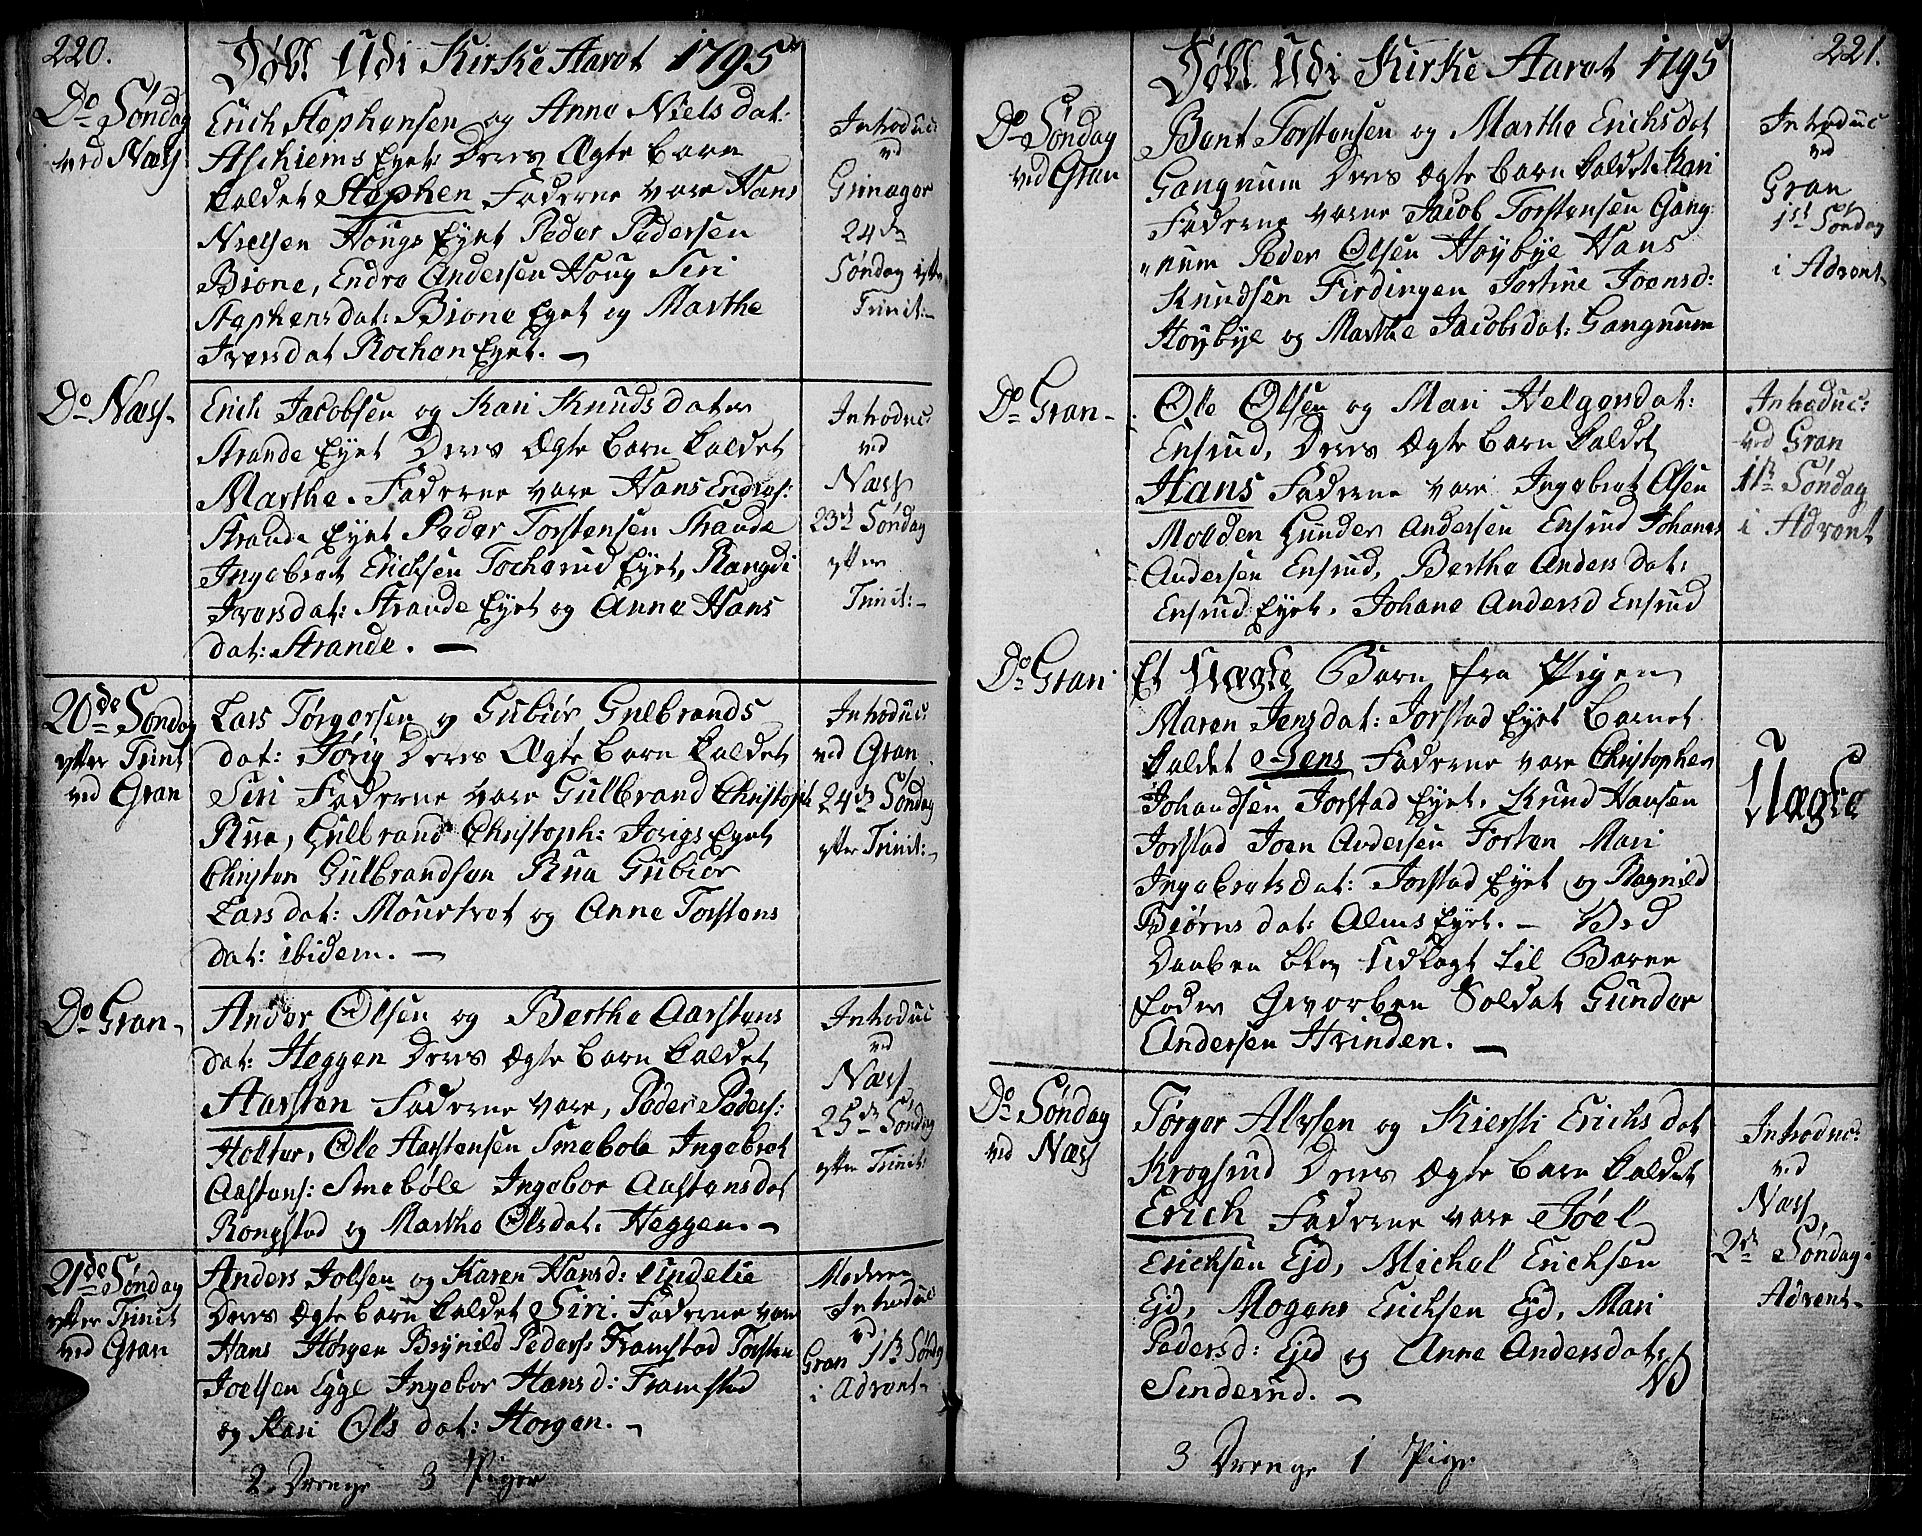 220.
Døbt Udi Kirke Aaret 1795
Do Søndag
ved Næss
Erich Stephensen og Anne Niels dat:
Aschiems Eyet: Deres Ægte Barn
kaldet Stephen Faderne vare Hans
Nielsen Hougs Eyet Peder Pedersen
Bione, Endre Andersen Houg Siri
Stephensdat: Bione Eyet og Marthe
Iversdat Rochen Eyet. —
Introduc:
vd
Grinager
24de
Søndag efter
Trinit:
Do Næss
Erich Jacobsen og Kari Knuds dater
Strande Eyet Deres Ægte Barn kaldet
Marthe. Faderne vare Hans Endres:
Strande Eyet Peder Torstensen Strande
Ingebret Erichsen Tocherud Eyet, Rangdi
Iversdat: Strande Eyet og Anne Hans
dat: Strande. —
Introduc:
ved
Næss
23de Søndag
efter
Trinit:
20de Søndag
efter Trinit
ved Gran
Lars Tørgersen og Gubiør Gulbrands
dat: Jørig Deres Ægte Barn kaldet
Siri Faderne vare Gulbrand Christoph
Rua, Gulbrand Christoph: Jorigs Eyet
Christen Gulbrandsen Rua Gubiør
Lars dat: Moustret og Anne Torstens
dat: ibidem. —
Introduc:
ved Gran
24de Søndag
efter Trinit:
Do Gran
Ander Olsen og Berthe Aarstens
dat: Heggen Deres Ægte Barn kaldet
Aarsten Faderne vare, Peder Peders:
Holter, Ole Aarstensen Smebøle Ingebret
Aastens: Smebøle Ingebor Aastensdat
Rongstad og Marthe Olsdat. Heggen. —
Introduc
vd
Næss
25de Søndag
efter Trinit:
21de Søndag
efter Trinit
ved Gran
Anders Jolsen og Karen Hansd: Lindelie
Deres Ægte Barn kaldet Siri. Faderne vare
Hans Horgen Brynild Peders: Framstad Torsten
Joelsen Egge Ingebor Hansd: Framstad
og Kari Ols dat: Horgen. —
Moderen
Introduc
vd
Gran 1ste Søndag
i Advent
2 Drenge 3 Piger
221.
Døbt Udi Kirke Aaret 1795
Do Søndag
ved Gran
Bent Torstensen og Marthe Erichsdat
Gangnum Deres Ægte Barn kaldet Kari
Faderne varne Jacob Torstensen Gang
"num Peder Olsen Høybye Hans
Knudsen Firdingen Jortine Joensd:
Høybye og Marthe Jacobsdat: Gangnum
Introduc
vd
Gran
1ste Søndag
i Advent
Do Gran
Ole Olsen og Mari Helgersdat:
Ensrud, Deres Ægte Barn kaldet
Hans Faderne vare Ingebret Olsen
Molden Gunder Andersen Ensrud Johanes
Andersen Ensrud, Berthe Anders dat:
Ensrud Eyet, Johane Andersd Ensrud
Introduc:
ved Gran
1ste Søndag
i Advent
Do Gran
Et Uægte Barn fra Pigen
Maren Jensdat: Jorstad Eyet Barnet
kaldet Jens Faderne vare Christopher
Johandsen Jorstad Eyet. Knud Hansen
Jorstad Joen Andersen Forten Mari
Ingebretsdat: Jorstad Eyet og Ragnild
Biørns dat: Alms Eyet. — Ved
Daaben blev Udlagt til Barne
Fader Gevorben Soldat Gunder
Andersen Hvinden. —
Uægte
Do Søndag
ved Næss
Torger Alvsen og Kiersti Erichs dat
Krogsrud Deres Ægte Barn kaldet
Erich Faderne vare Joel
Erichsen Ejd, Michel Erichsen
Ejd, Mogens Erichsen Ejd, Mari
Pedersd: Ejd og Anne Andersdat:
Sinderud. —
Introduc:
ved
Næss
2de Søndag i
Advent
3 Drenge 1 Pige